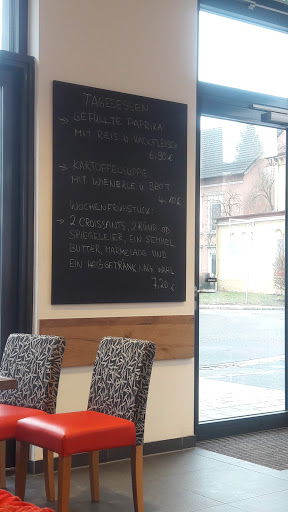 TAGESESSEN
→ GEFÜLLTE PAPRIKA
MIT REIS U HACKFLEISCH
6,90€
→ KARTOFFELSUPPE
MIT WIENERLE U BROT
4.10€
WOCHENFRÜHSTÜCK:
→ 2 CROISSANTS, 2 RÜHR- OD
SPIEGELEIER, EIN SEMMEL,
BUTTER, MARMELADE UND
EIN HEIßGETRÄNK NACH WAHL
7.20€